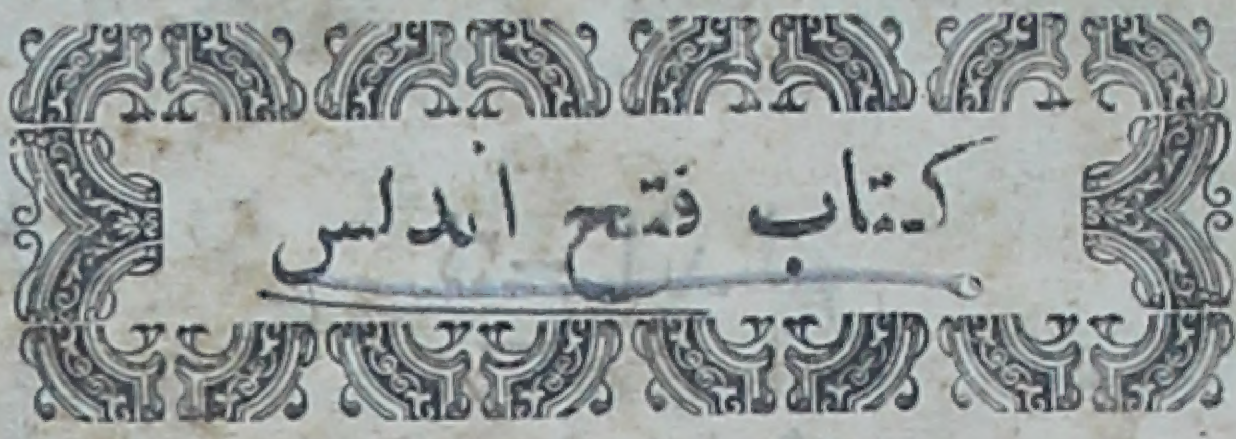 كتاب فتح اندلس